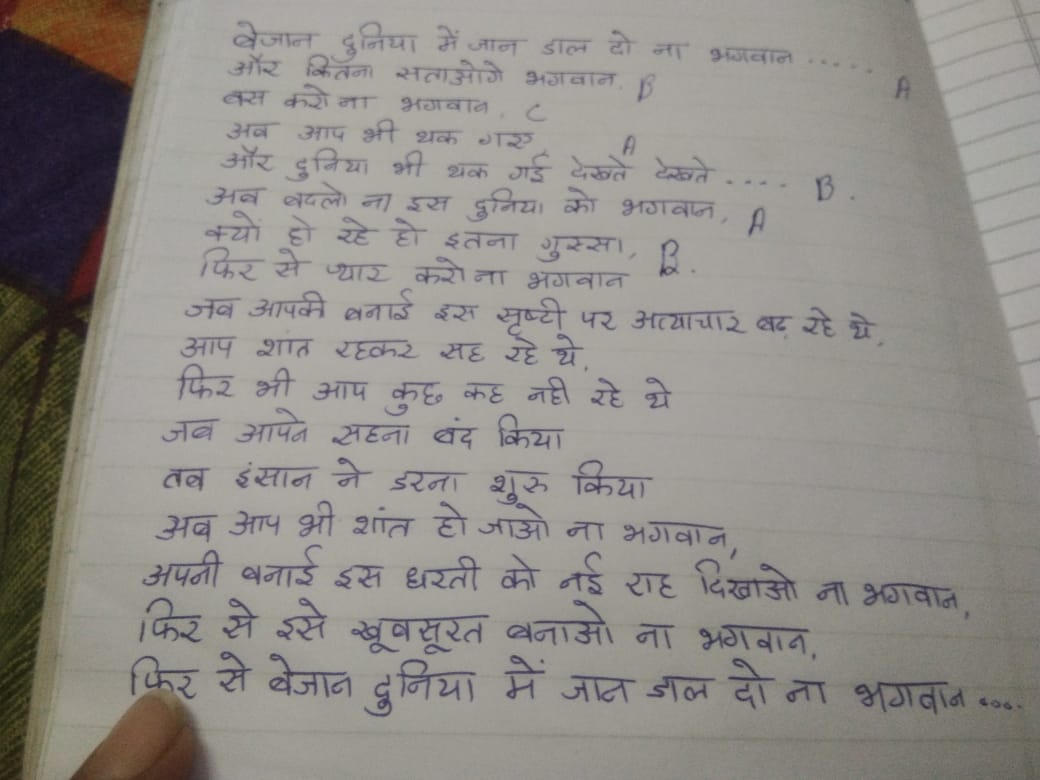 बेजान दुनिया में जान डाल दो ना भगवान ..... A
और कितना सताओगे भगवान, B
बस करो ना भगवान, C
अब आप भी थक गए, A
और दुनिया भी थक गई देखते देखते .... B.
अब बदलो ना इस दुनिया को भगवान, A
क्यों हो रहे हो इतना गुस्सा, B.
फिर से प्यार करो ना भगवान
जब आपकी बनाई इस सृष्टी पर अत्याचार बढ़ रहे थे,
आप शांत रहकर सह रहे थे,
फिर भी आप कुछ कह नही रहे थे
जब आपने सहना बंद किया
तब इंसान ने डरना शुरु किया
अब आप भी शांत हो जाओ ना भगवान,
अपनी बनाई इस धरती को नई राह दिखाओ ना भगवान,
फिर से इसे खूबसूरत बनाओ ना भगवान,
फिर से बेजान दुनिया में जान डाल दो ना भगवान ....